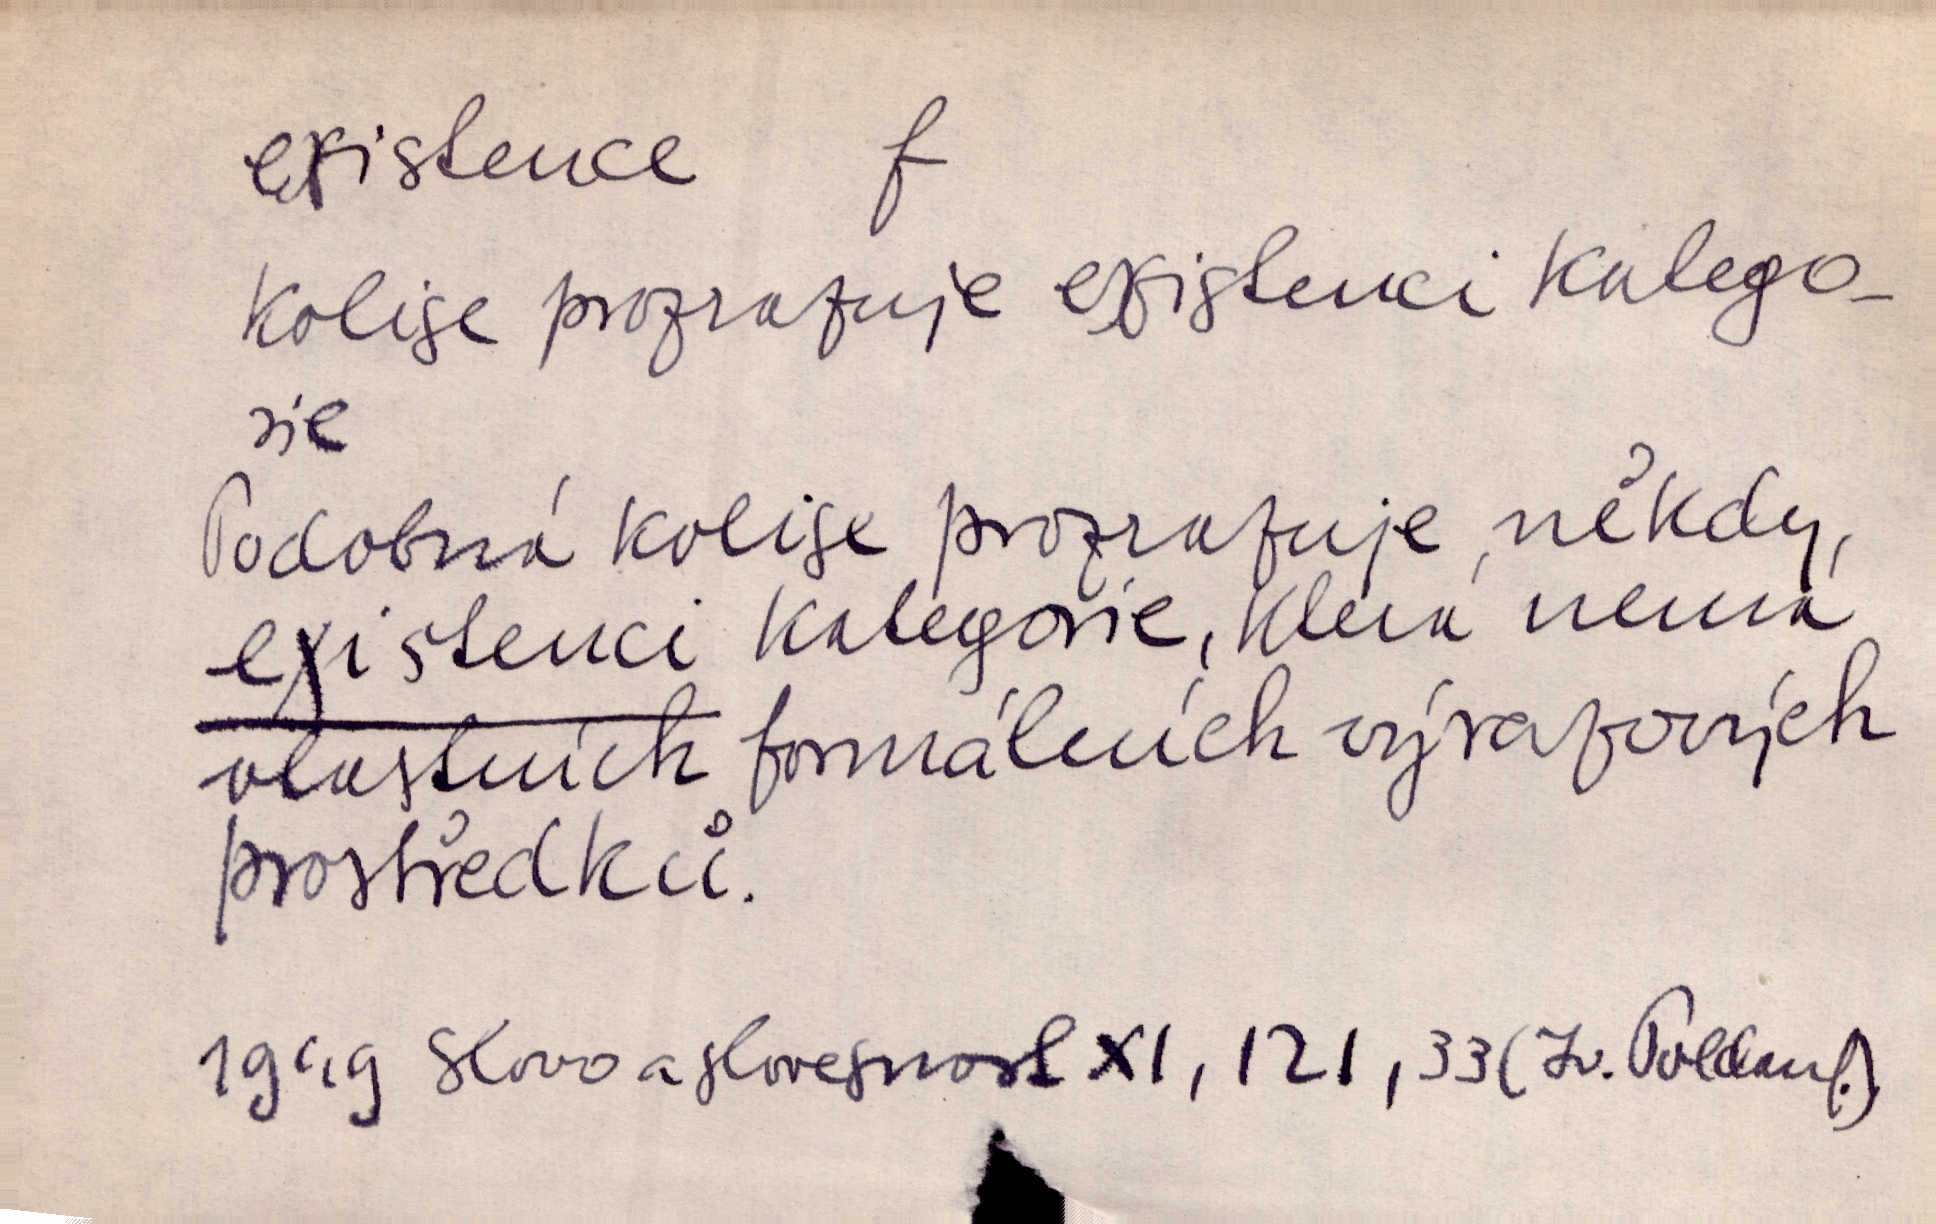 existence f
kolise prozrazuje existenci katego-
rie
Podobná kolise prozrazuje, někdy,
existenci kategorie, která nemá
vlastních formálních výrazových
prostředků.
1949 Slovo a slovesnost XI, 121, 33 (Iv. Poldauf.)